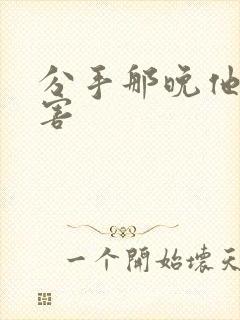 分手那晚他
害
一个開始壞天